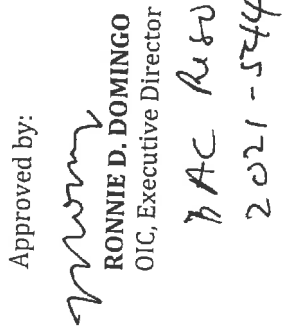 Approved by:
RONNIE D. DOMINGO
OIC, Executive Director
BAC Reso
2021-544